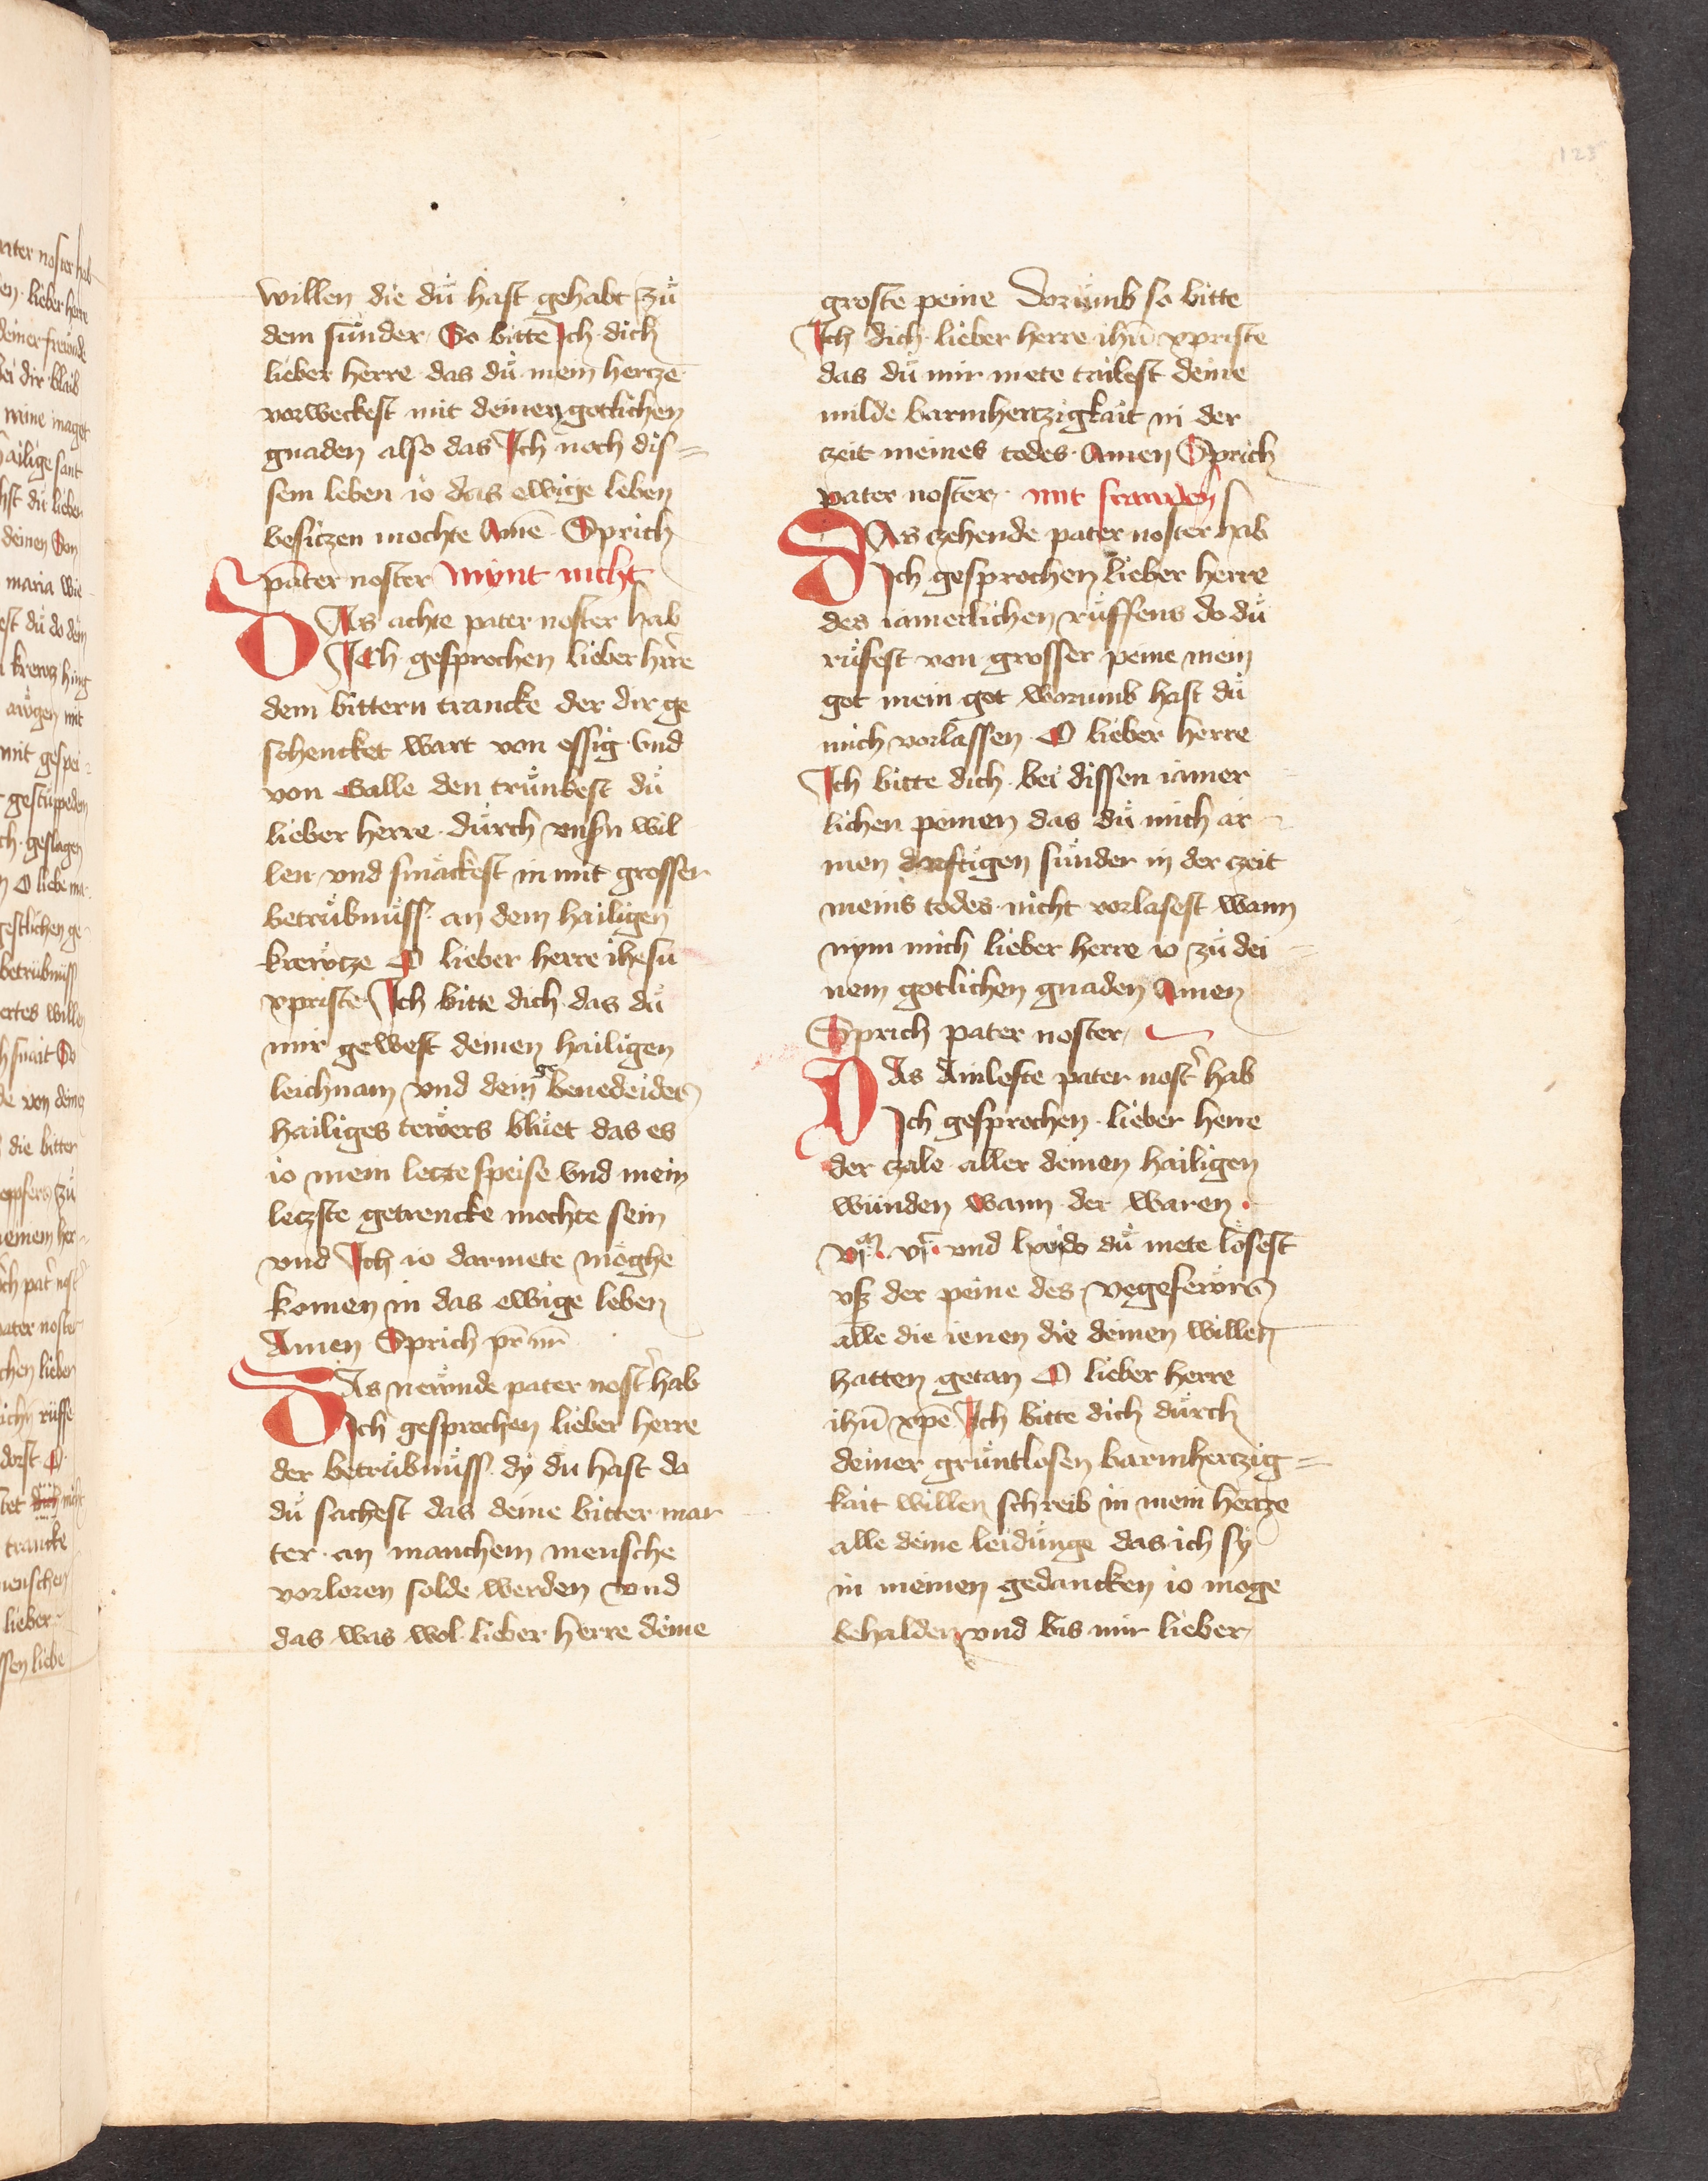 123
willen die dů hast gehabt zů
dem sůnder So bitte Ich dich
lieber herre das dů mein hertze
vorweckest mit deinen gotlichen
gnaden also das Ich noch dis=
sem leben io das ewige leben
besitzen mochte Amē Sprich
pater noster mynt nicht
DAs achte pater noster hab
Ich gesprochen lieber hrre
dem bittern trancke der dir ge
schencket wart von essig vnd
von Galle den trůnkest dů
lieber herre durch vnsn wil
len vnd smackest in mit grosser
betrůbnůss an dem hailigen
krewtze O lieber herre ihesu
xpriste Ich bitte dich das dů
mir gewest deinen hailigen
leichnam vnd dein ge benedeides
hailiges tewers blůet das es
io mein letzte speise vnd mein
letzste getrencke mochte sein
vnd Ich io darmete möghe
komen in das ewige leben
Amen Sprich pr nr
DAs newnde pater nostr hab
Ich gesprochen lieber herre
der betrůbnůss dy du hast do
dů sachest das deine bitter mar
ter an manchem mensche
vorloren solde werden vnd
das was wol lieber herre deine
groste peine Dorumb so bitte
Ich dich lieber herre ihū xpriste
das dů mir mete tailest deine
milde barmhertzigkait in der
czeit meines todes Amen Sprich
pater noster mit
DAs czehende pater noster hab
Ich gesprochen lieber herre
des iamerlichen růffens do dů
růfest von grosser peine mein
got mein got worumb hast dů
mich vorlassen O lieber herre
Ich bitte dich bei dissen iamer
lichen peinen das dů mich ar
men dorftigen sůnder in der czeit
meins todes nicht vorlasest wann
nym mich lieber herre io zů dei
nem gotlichen gnaden Amen
Sprich pater noster
DAs Ainlefte pater nostr hab
Ich gesprochen lieber herre
der czale aller deinen hailigen
wunden wann der waren
vjm vjc vnd lxvj do dů mete lösest
vsz der peine des vegefewrs
alle die ienen die deinen willen
hatten getan O lieber herre
ihū xpē Ich bitte dich důrch
deiner grůntlosen barmhertzig=
kait willen schreib in mein hertze
alle deine leidůnge das ich sy
in meinen gedancken io moge
behalden vnd bis mir lieber